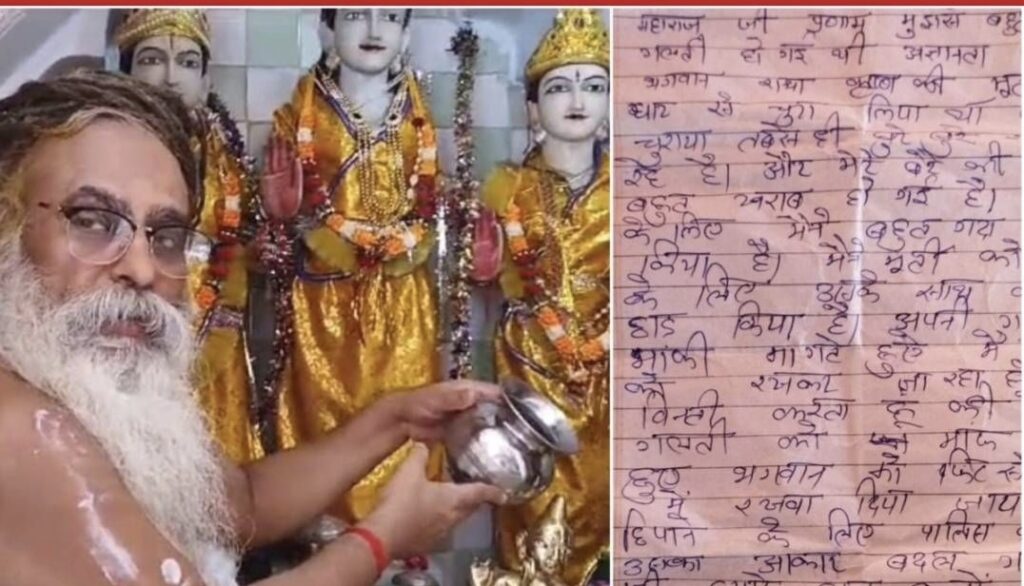 महाराज जी प्रणाम मुझसे बहु
गलती हो गई थी अज्ञानता
भगवान राधा कृष्ण की मूर्
लिया था
चुराया तबसे ही बुरे
रहे है। और मेरे बेटे की
बहुत खराब हो गई है।
के लिए मैने बहुत गंदा
किया है। मैने मूर्ती को
के लिए उसके साथ
छाड़ किया है। अपनी ग
माफी मांगते हुए मै
को रखकर जा रहा हूँ
विनती करता हूँ की
गलती को माफ
हुए भगवान को फिर से
में रखवा दिया जाय
के लिए पालिस
उसका आकार बदल ग